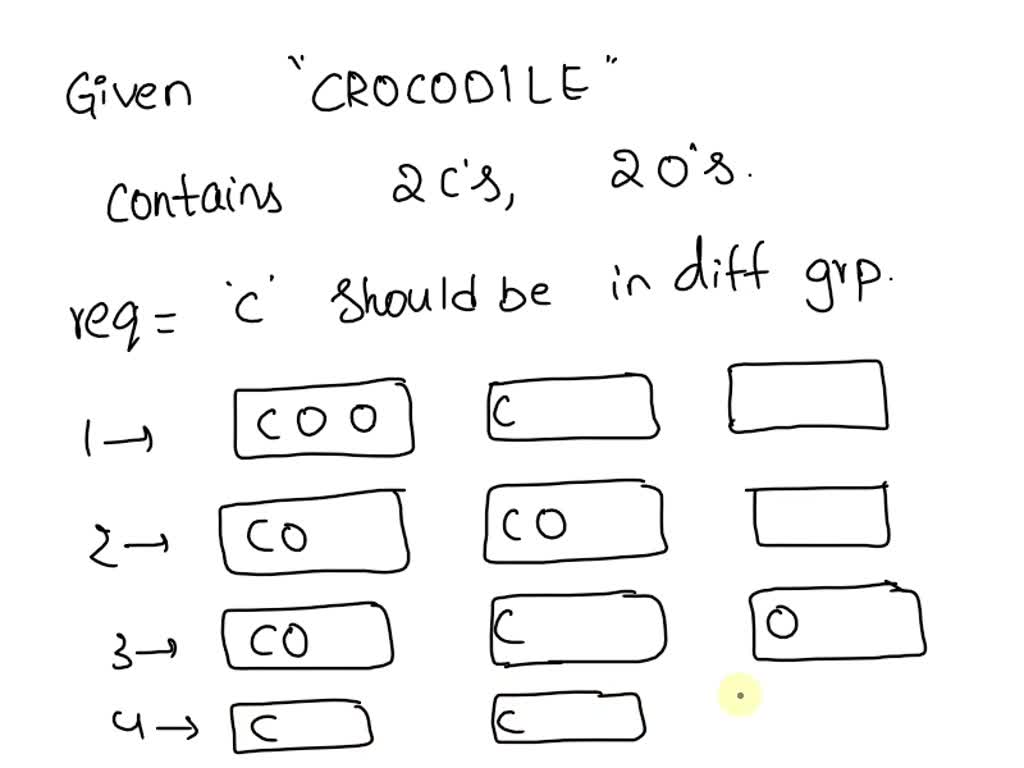 Given "CROCODILE"
contains 2 C's, 2 O's.
req = 'C' should be in diff grp.
1 → C O O C
2 → C O C O
3 → C O C O
4 → C C